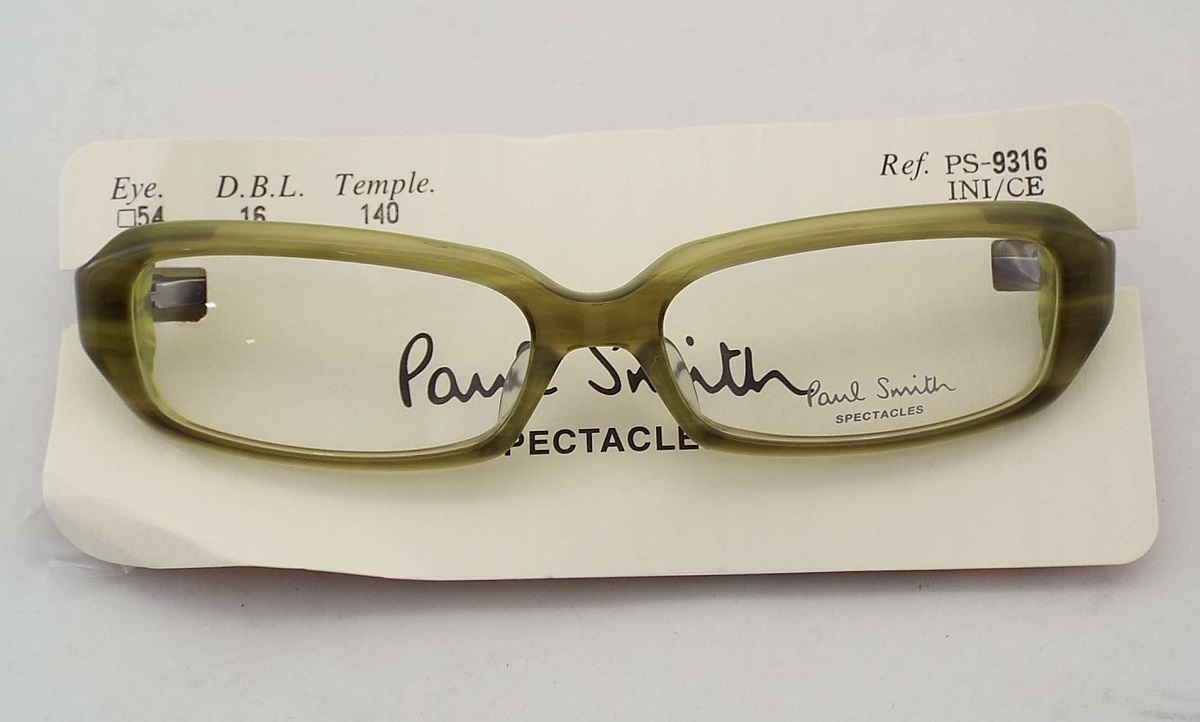 Eye. D.B.L. Temple.
□54 16 140
Ref. PS-9316
INI/CE
Paul Smith
PECTACLE
Paul Smith
SPECTACLES